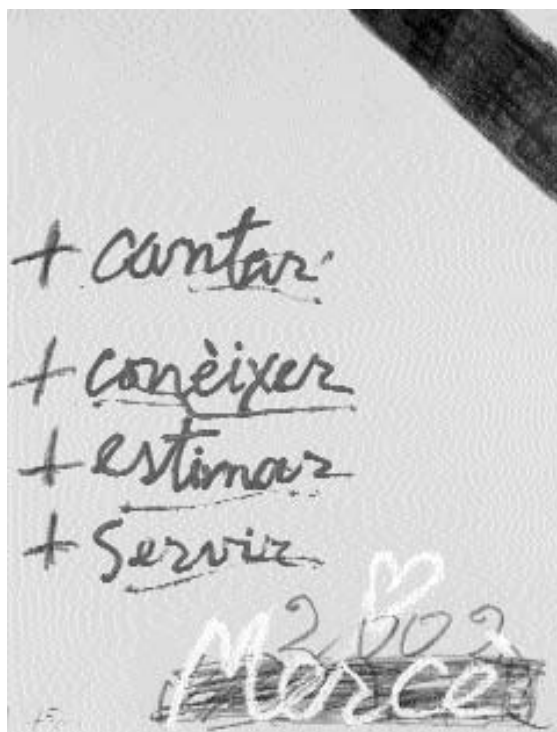 + cantar
+ conèixer
+ estimar
+ Servir
2.002
Mercè